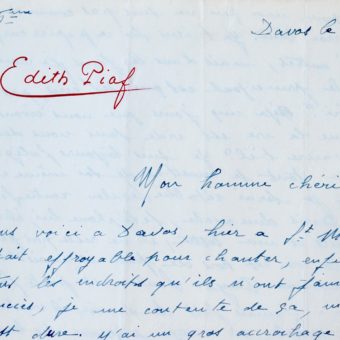 Davos le
Edith Piaf
Mon homme chéri
us voici a Davos, hier a St M
tait effroyable pour chanter, enfe
les endroits qu'ils n'ont jam
ccès, je me contente de ça, m
dure. y'ai un gros accrochage